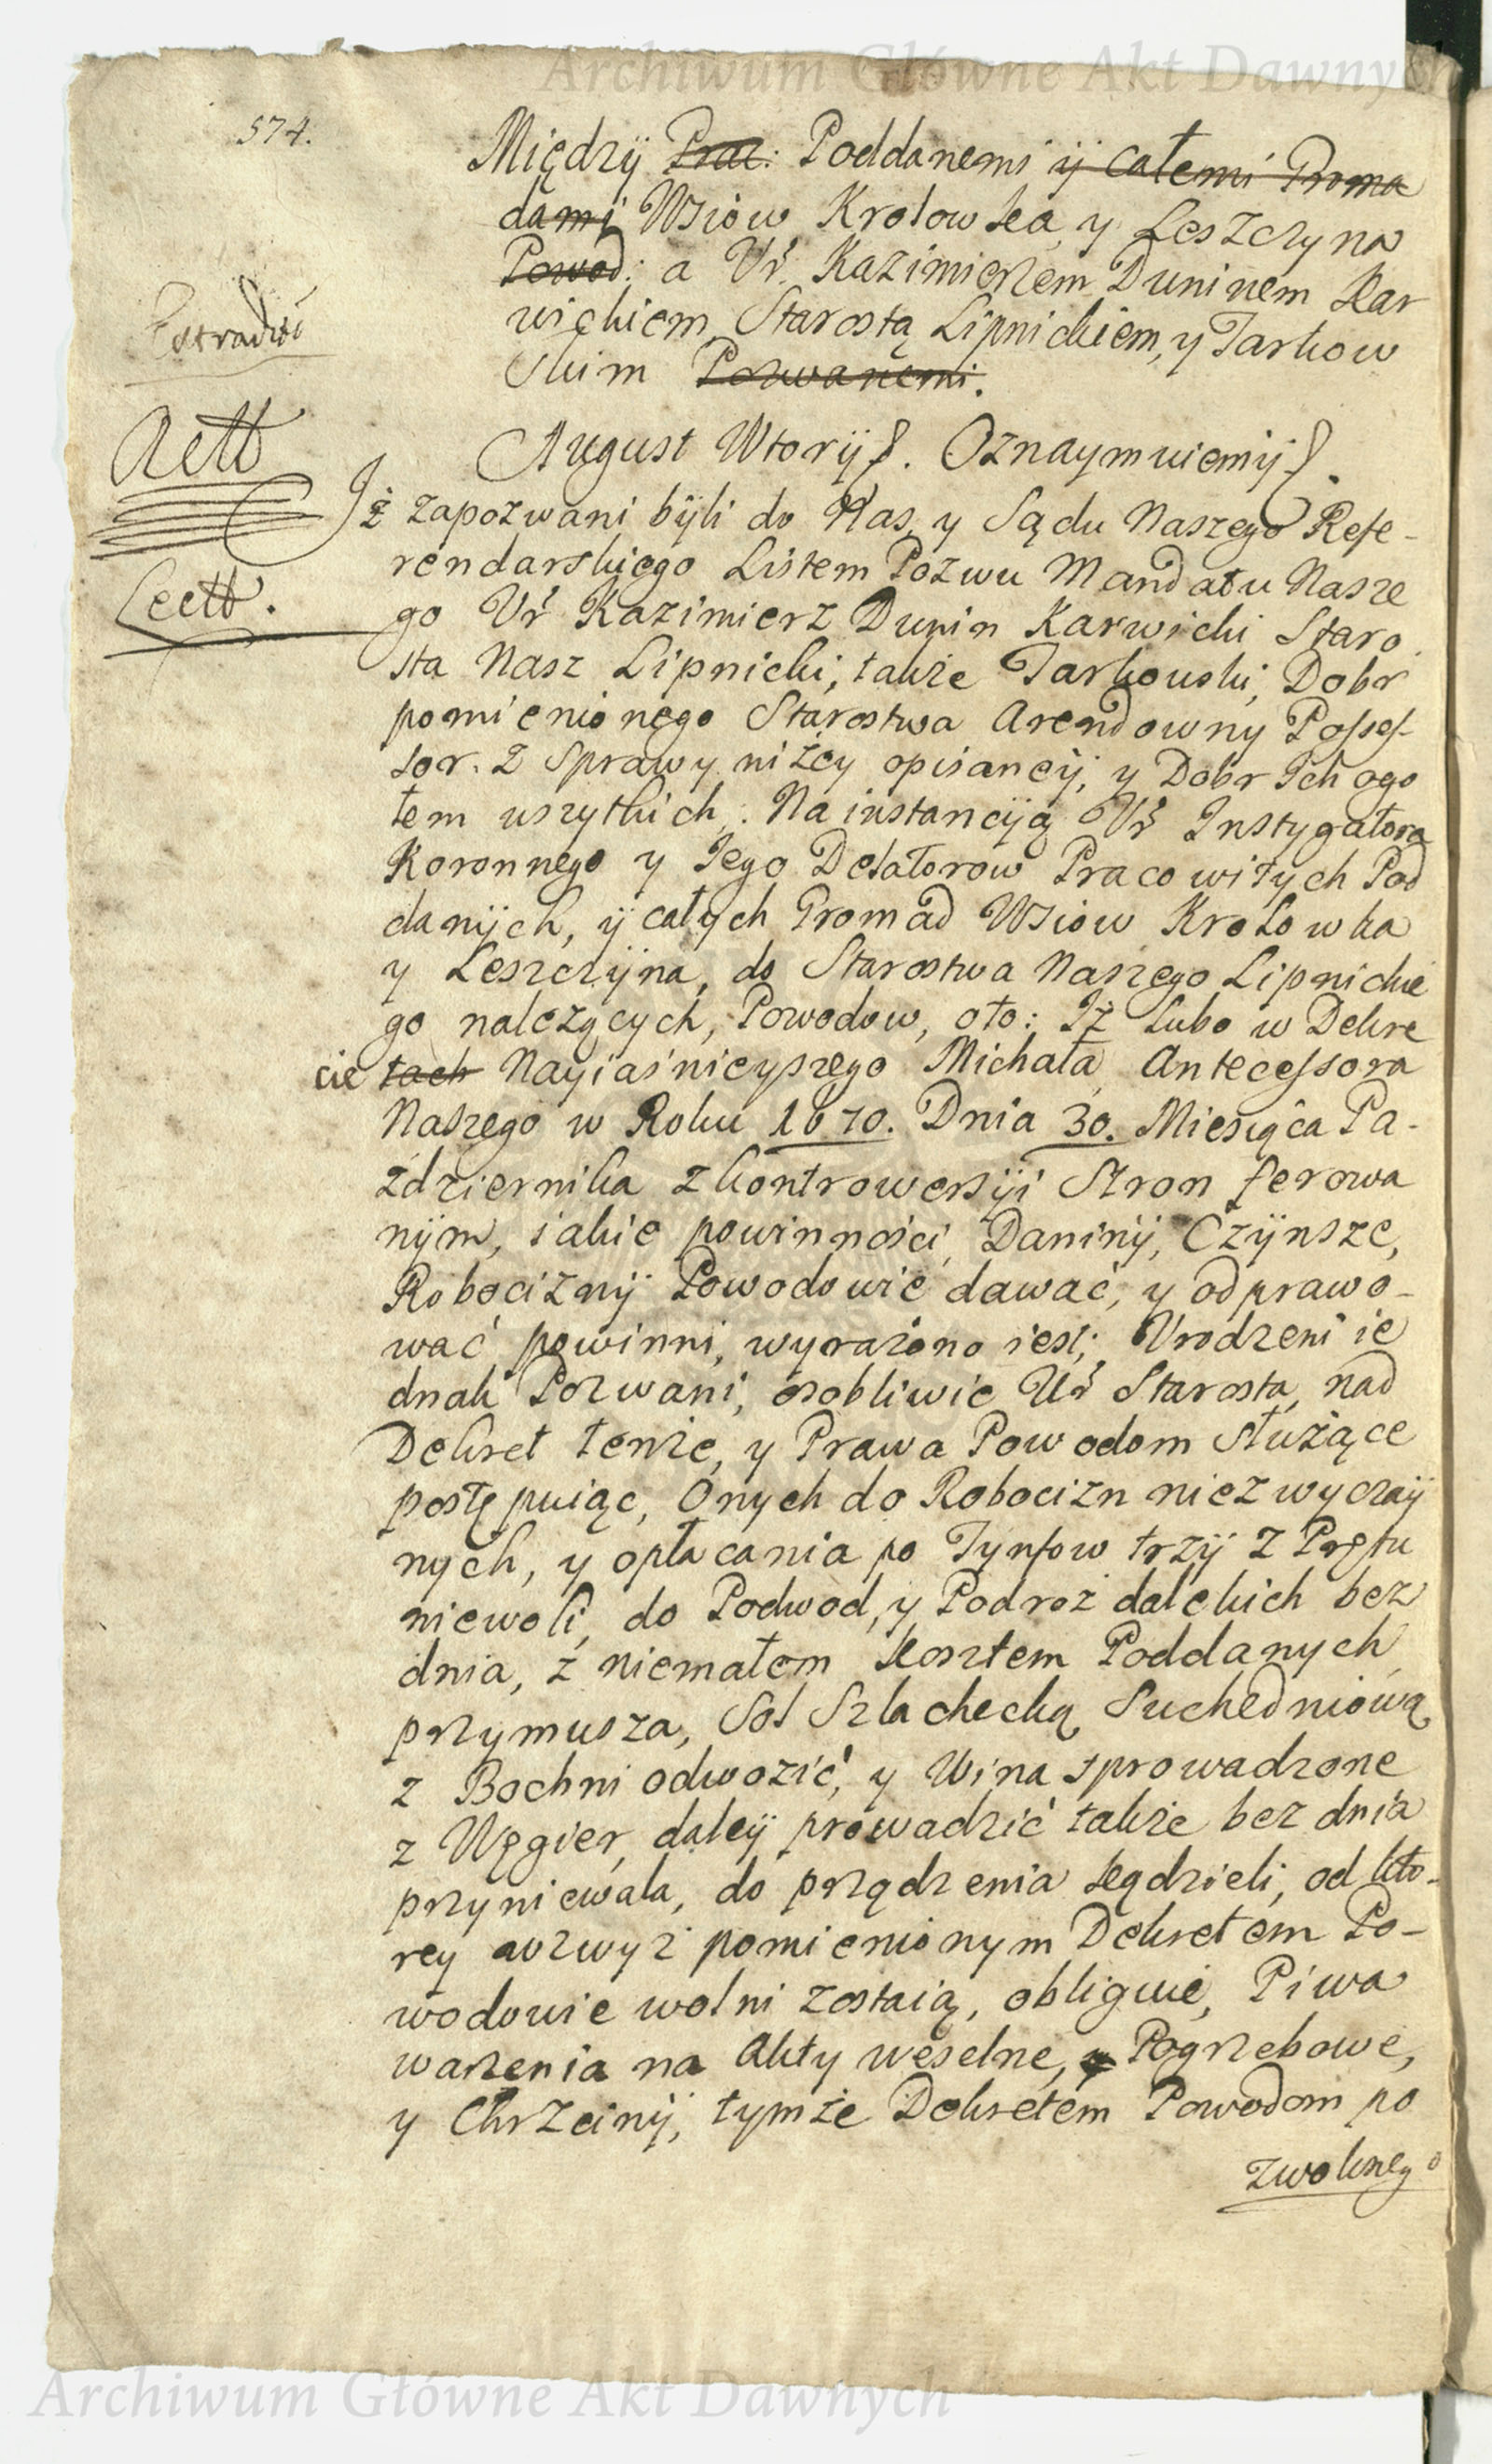 Archiwum Główne Akt Dawnych
574.
Między Prac: Poddanemi ÿ całemi Groma
dami Wsiow Krolowka y Leszczyna
Powod: a Ur. Kazimierzem Duninem Kar
wickiem Starostą Lipnickiem, y Tarkow
skim Pozwanemi.
Extradit
August Wtorÿ. Oznaymuiemÿ.
Rett
Iż zapozwani bÿli do Nas, y Sądu Naszego Refe-
rendarskiego Listem Pozwu Mandatu Nasze
Lectt.
go Ur Kazimierz Dunin Karwicki Staro
sta Nasz Lipnicki, także Tarkowski, Dobr
pomienionego Starostwa Arendowny Possess
sor. Z Sprawy niżey opisaneÿ, y Dobr Ich ogo
łem wszytkich. Na instancÿą Ur Instygatora
Koronnego y Iego Delatorow Pracowitych Pod
danÿch, ÿ całych Gromad Wsiow Krolowka
y Leszczÿna, do Starostwa Naszego Lipnickie
go należących, Powodow, oto: Iż lubo w Dekre
cie tach Nayiaśnieyszego Michała Antecessora
Naszego w Roku 1670. Dnia 30. Miesiąca Pa-
ździernika z kontrowersÿi Stron ferowa
nÿm, iakie powinności, Daninÿ, Czÿnsze,
Robociznÿ Powodowie dawać, y odprawo-
wać powinni, wyrażono iest; Urodzeni ie
dnak Pozwani, osobliwie Ur Starosta, nad
Dekret tenże, y Prawa Powodom służące
postępuiąc, Onych do Robocizn niezwyczaÿ
nych, y opłacania po Tynfow trzÿ z Prętu
niewoli, do Podwod, y Podroż dalekich bez
dnia, z niemałem kosztem Poddanych
przymusza, Sol Szlachecką Suchedniową
z Bochni odwozić, y Wina sprowadzone
z Węgier, daleÿ prowadzić także bez dnia
przyniewala, do przędzenia kądzieli, od kto-
rey wzwyż pomienionym Dekretem Po-
wodowie wolni zostaią, obliguie, Piwa
warzenia na Akty weselne, y Pogrzebowe,
y Chrzcinÿ, tymże Dekretem Powodom po
zwolnego
Archiwum Główne Akt Dawnych